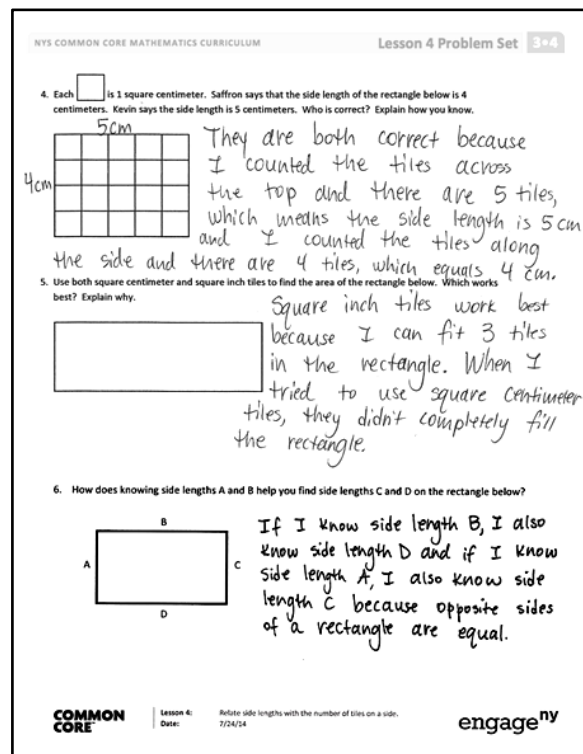 NYS COMMON CORE MATHEMATICS CURRICULUM
Lesson 4 Problem Set 3•4
4. Each is 1 square centimeter. Saffron says that the side length of the rectangle below is 4
centimeters. Kevin says the side length is 5 centimeters. Who is correct? Explain how you know.
5cm
4cm
They are both correct because
I counted the tiles across
the top and there are 5 tiles,
which means the side length is 5 cm
and I counted the tiles along
the side and there are 4 tiles, which equals 4 cm.
5. Use both square centimeter and square inch tiles to find the area of the rectangle below. Which works
best? Explain why.
Square inch tiles work best
because I can fit 3 tiles
in the rectangle. When I
tried to use square centimeter
tiles, they didn't completely fill
the rectangle.
6. How does knowing side lengths A and B help you find side lengths C and D on the rectangle below?
B
A
C
D
If I know side length B, I also
know side length D and if I know
side length A, I also know side
length C because opposite sides
of a rectangle are equal.
COMMON
CORE
Lesson 4: Relate side lengths with the number of tiles on a side.
Date: 7/24/14
engage ny